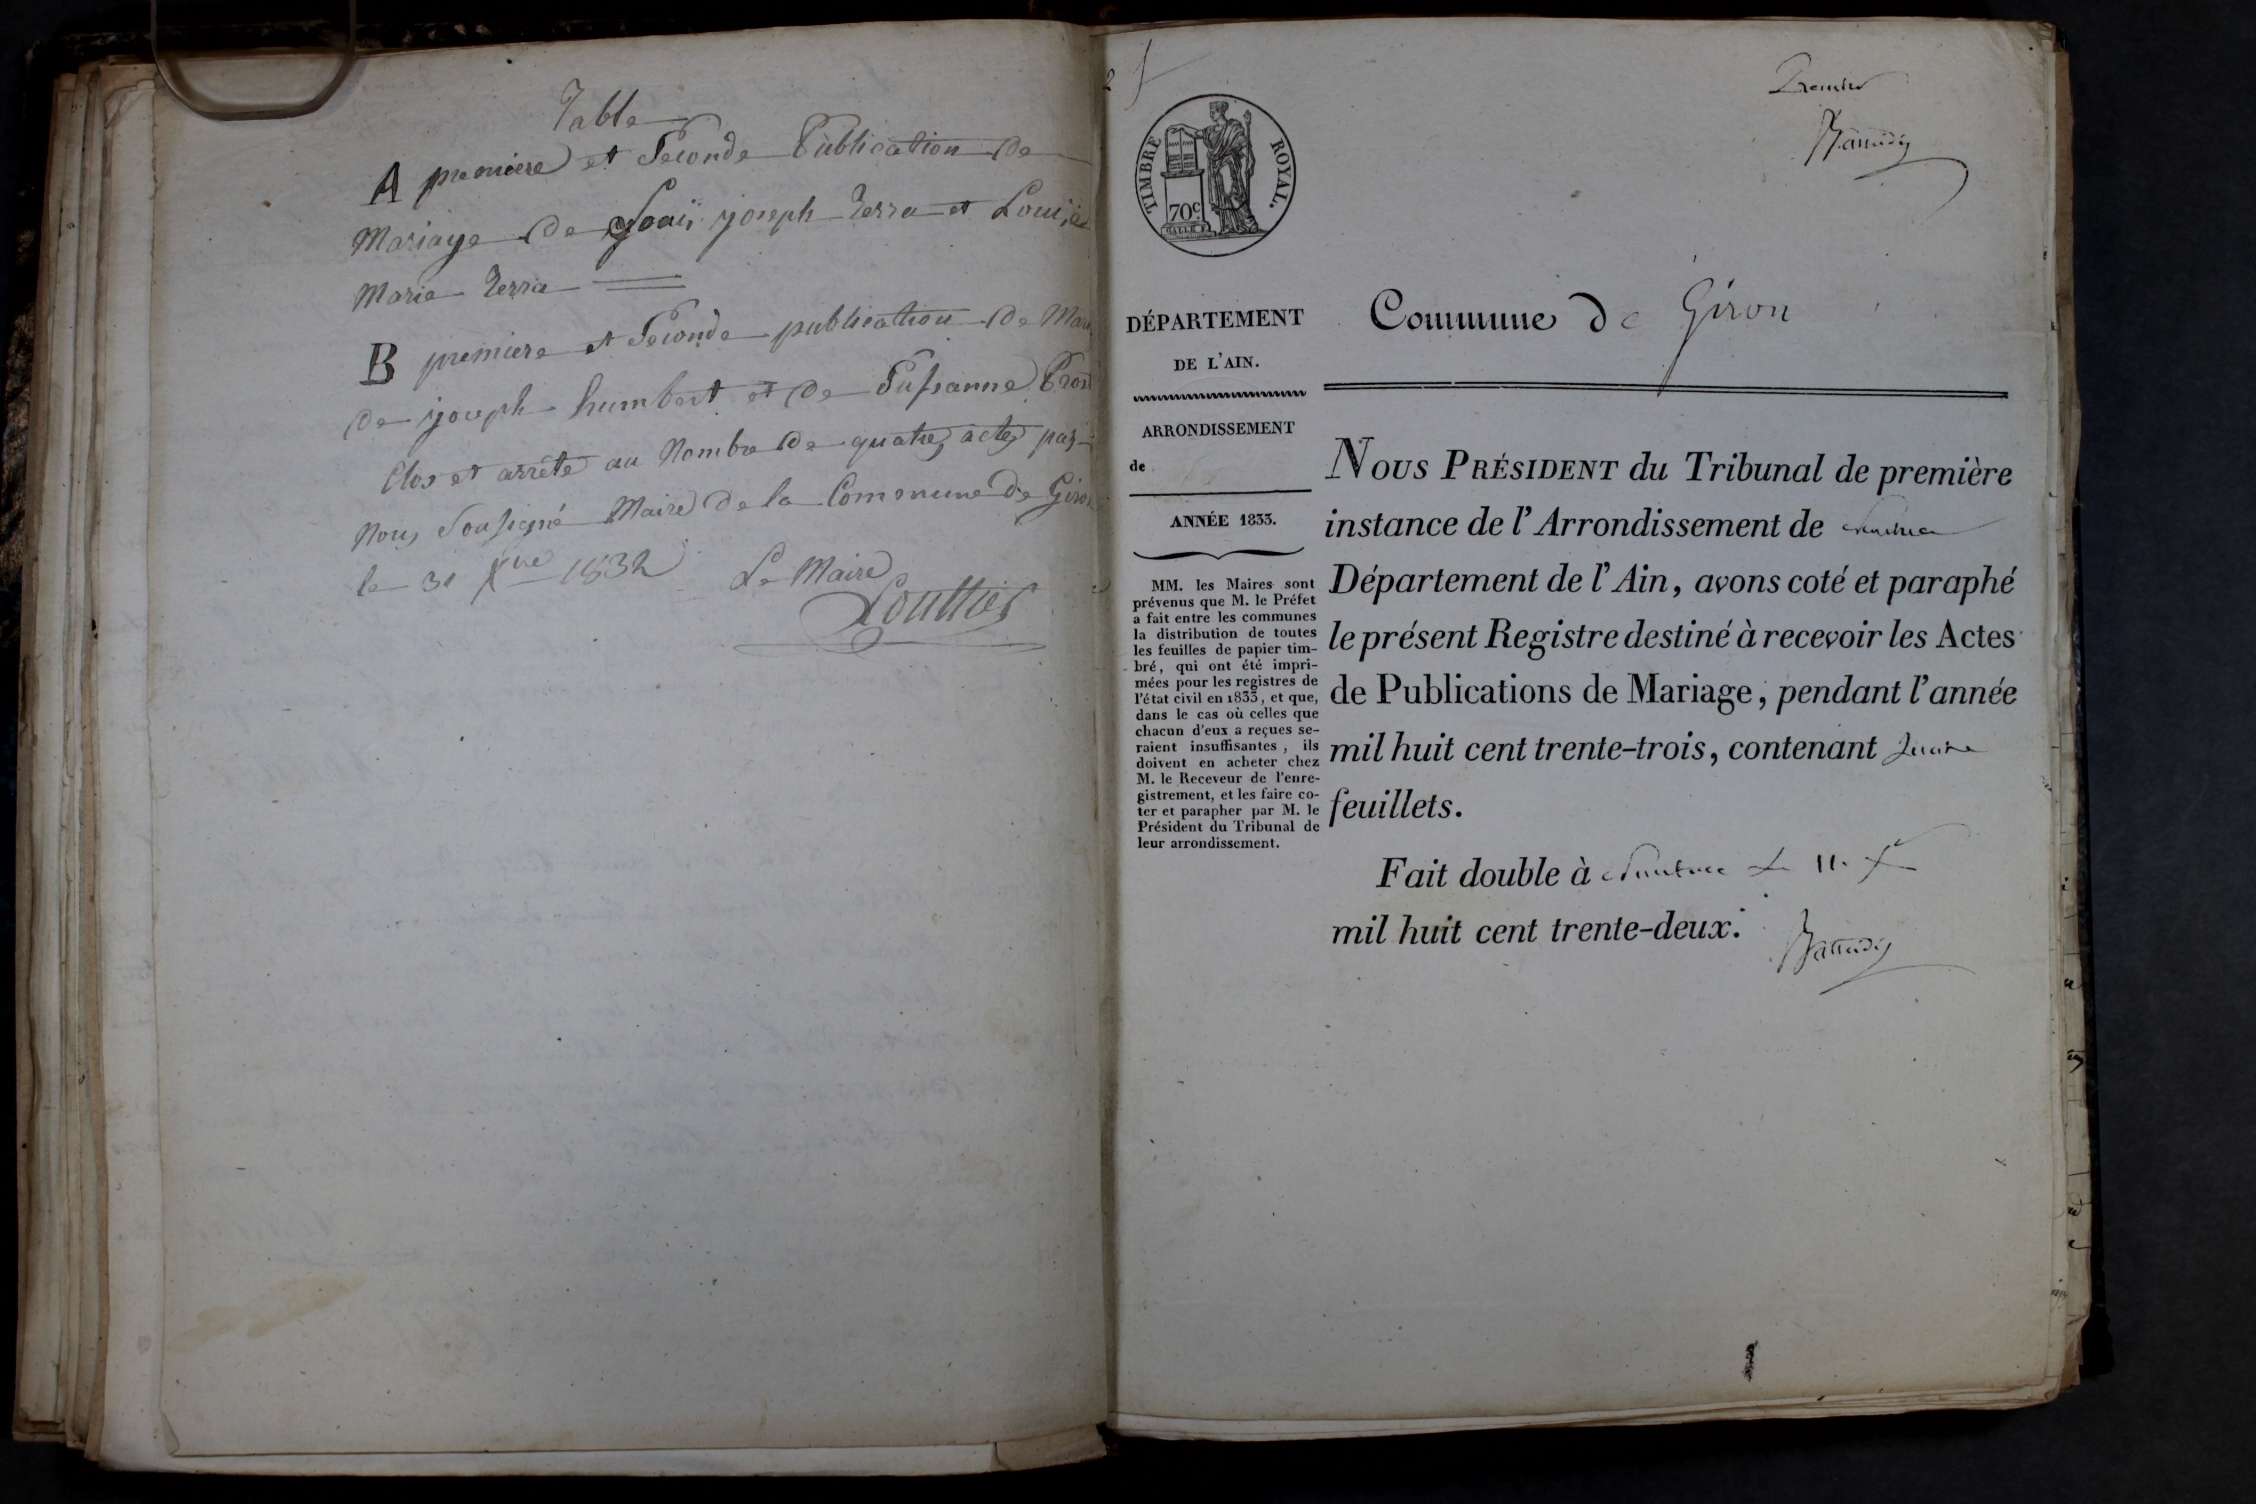 Table
A premiere et Seconde Publication de
Mariage de joseph Terra et Louise
Marie Terra
B premiere et Seconde publication de
de joseph humbert et de Susanne
Clos et arrêté au Nombre de quatre actes par
Nous Sousigné Maire de la Commune de Giron
le 31 Xbre 1832 Le Maire
Louttier
2
Premier
TIMBRE ROYAL.
70c
DÉPARTEMENT
DE L'AIN.
ARRONDISSEMENT
de
ANNÉE 1833.
MM. les Maires sont
prévenus que M. le Préfet
a fait entre les communes
la distribution de toutes
les feuilles de papier tim-
bré, qui ont été impri-
mées pour les registres de
l'état civil en 1833, et que,
dans le cas où celles que
chacun d'eux a reçues se-
raient insuffisantes, ils
doivent en acheter chez
M. le Receveur de l'enre-
gistrement, et les faire co-
ter et parapher par M. le
Président du Tribunal de
leur arrondissement.
Commune de Giron
NOUS PRÉSIDENT du Tribunal de première
instance de l'Arrondissement de Nantua
Département de l'Ain, avons coté et paraphé
le présent Registre destiné à recevoir les Actes
de Publications de Mariage, pendant l'année
mil huit cent trente-trois, contenant
feuillets.
Fait double à Nantua le 11 Xe
mil huit cent trente-deux.